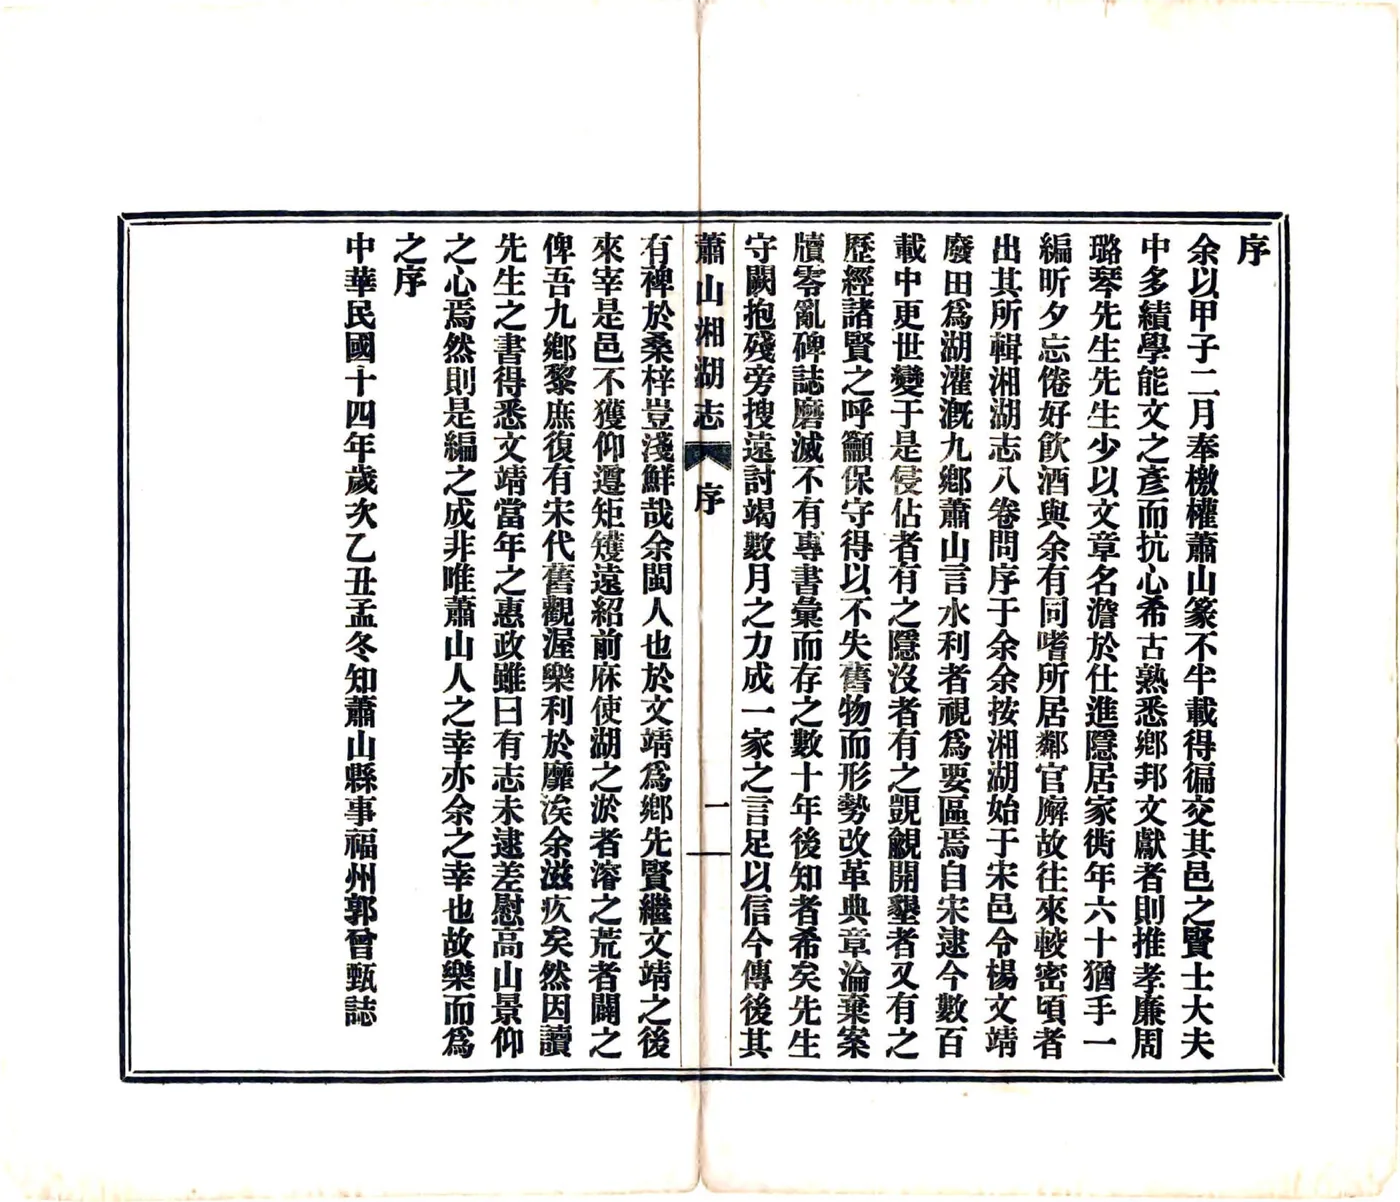 序
余以甲子二月奉檄權蕭山篆不半載得徧交其邑之賢士大夫
中多績學能文之彥而抗心希古熟悉鄉邦文獻者則推孝廉周
璐琴先生先生少以文章名澹於仕進隱居家衖年六十猶手一
編昕夕忘倦好飲酒與余有同嗜所居鄰官廨故往來較密頃者
出其所輯湘湖志八卷問序于余余按湘湖始于宋邑令楊文靖
廢田爲湖灌漑九鄉蕭山言水利者視爲要區焉自宋逮今數百
載中更世變于是侵佔者有之隱沒者有之覬覦開墾者又有之
歷經諸賢之呼籲保守得以不失舊物而形勢改革典章淪棄案
牘零亂碑誌磨滅不有專書彙而存之數十年後知者希矣先生
守闕抱殘旁搜遠討竭數月之力成一家之言足以信今傳後其
蕭山湘湖志 序 一
有裨於桑梓豈淺鮮哉余閩人也於文靖爲鄉先賢繼文靖之後
來宰是邑不獲仰遵矩矱遠紹前庥使湖之淤者濬之荒者闢之
俾吾九鄉黎庶復有宋代舊觀渥樂利於靡涘余滋疚矣然因讀
先生之書得悉文靖當年之惠政雖曰有志未逮差慰高山景仰
之心焉然則是編之成非唯蕭山人之幸亦余之幸也故樂而爲
之序
中華民國十四年歲次乙丑孟冬知蕭山縣事福州郭曾甄誌